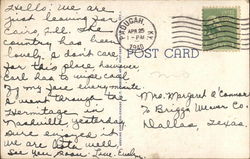 Hello: We are
just leaving for
Cairo, Ill. The
Country has been
lovely, I don't care
for this place however
Carl has to wipe coal
of my face every minute
I went through the
Hermitage in
Nashville yesterday
Sure enjoyed it
We are both well
See you soon. Love,
PADUCAH, KY.
APR 25
1-PM
1940
POST CARD
Mrs. Margaret O'Connor
% Briggs Weaver Co.
Dallas, Texas.